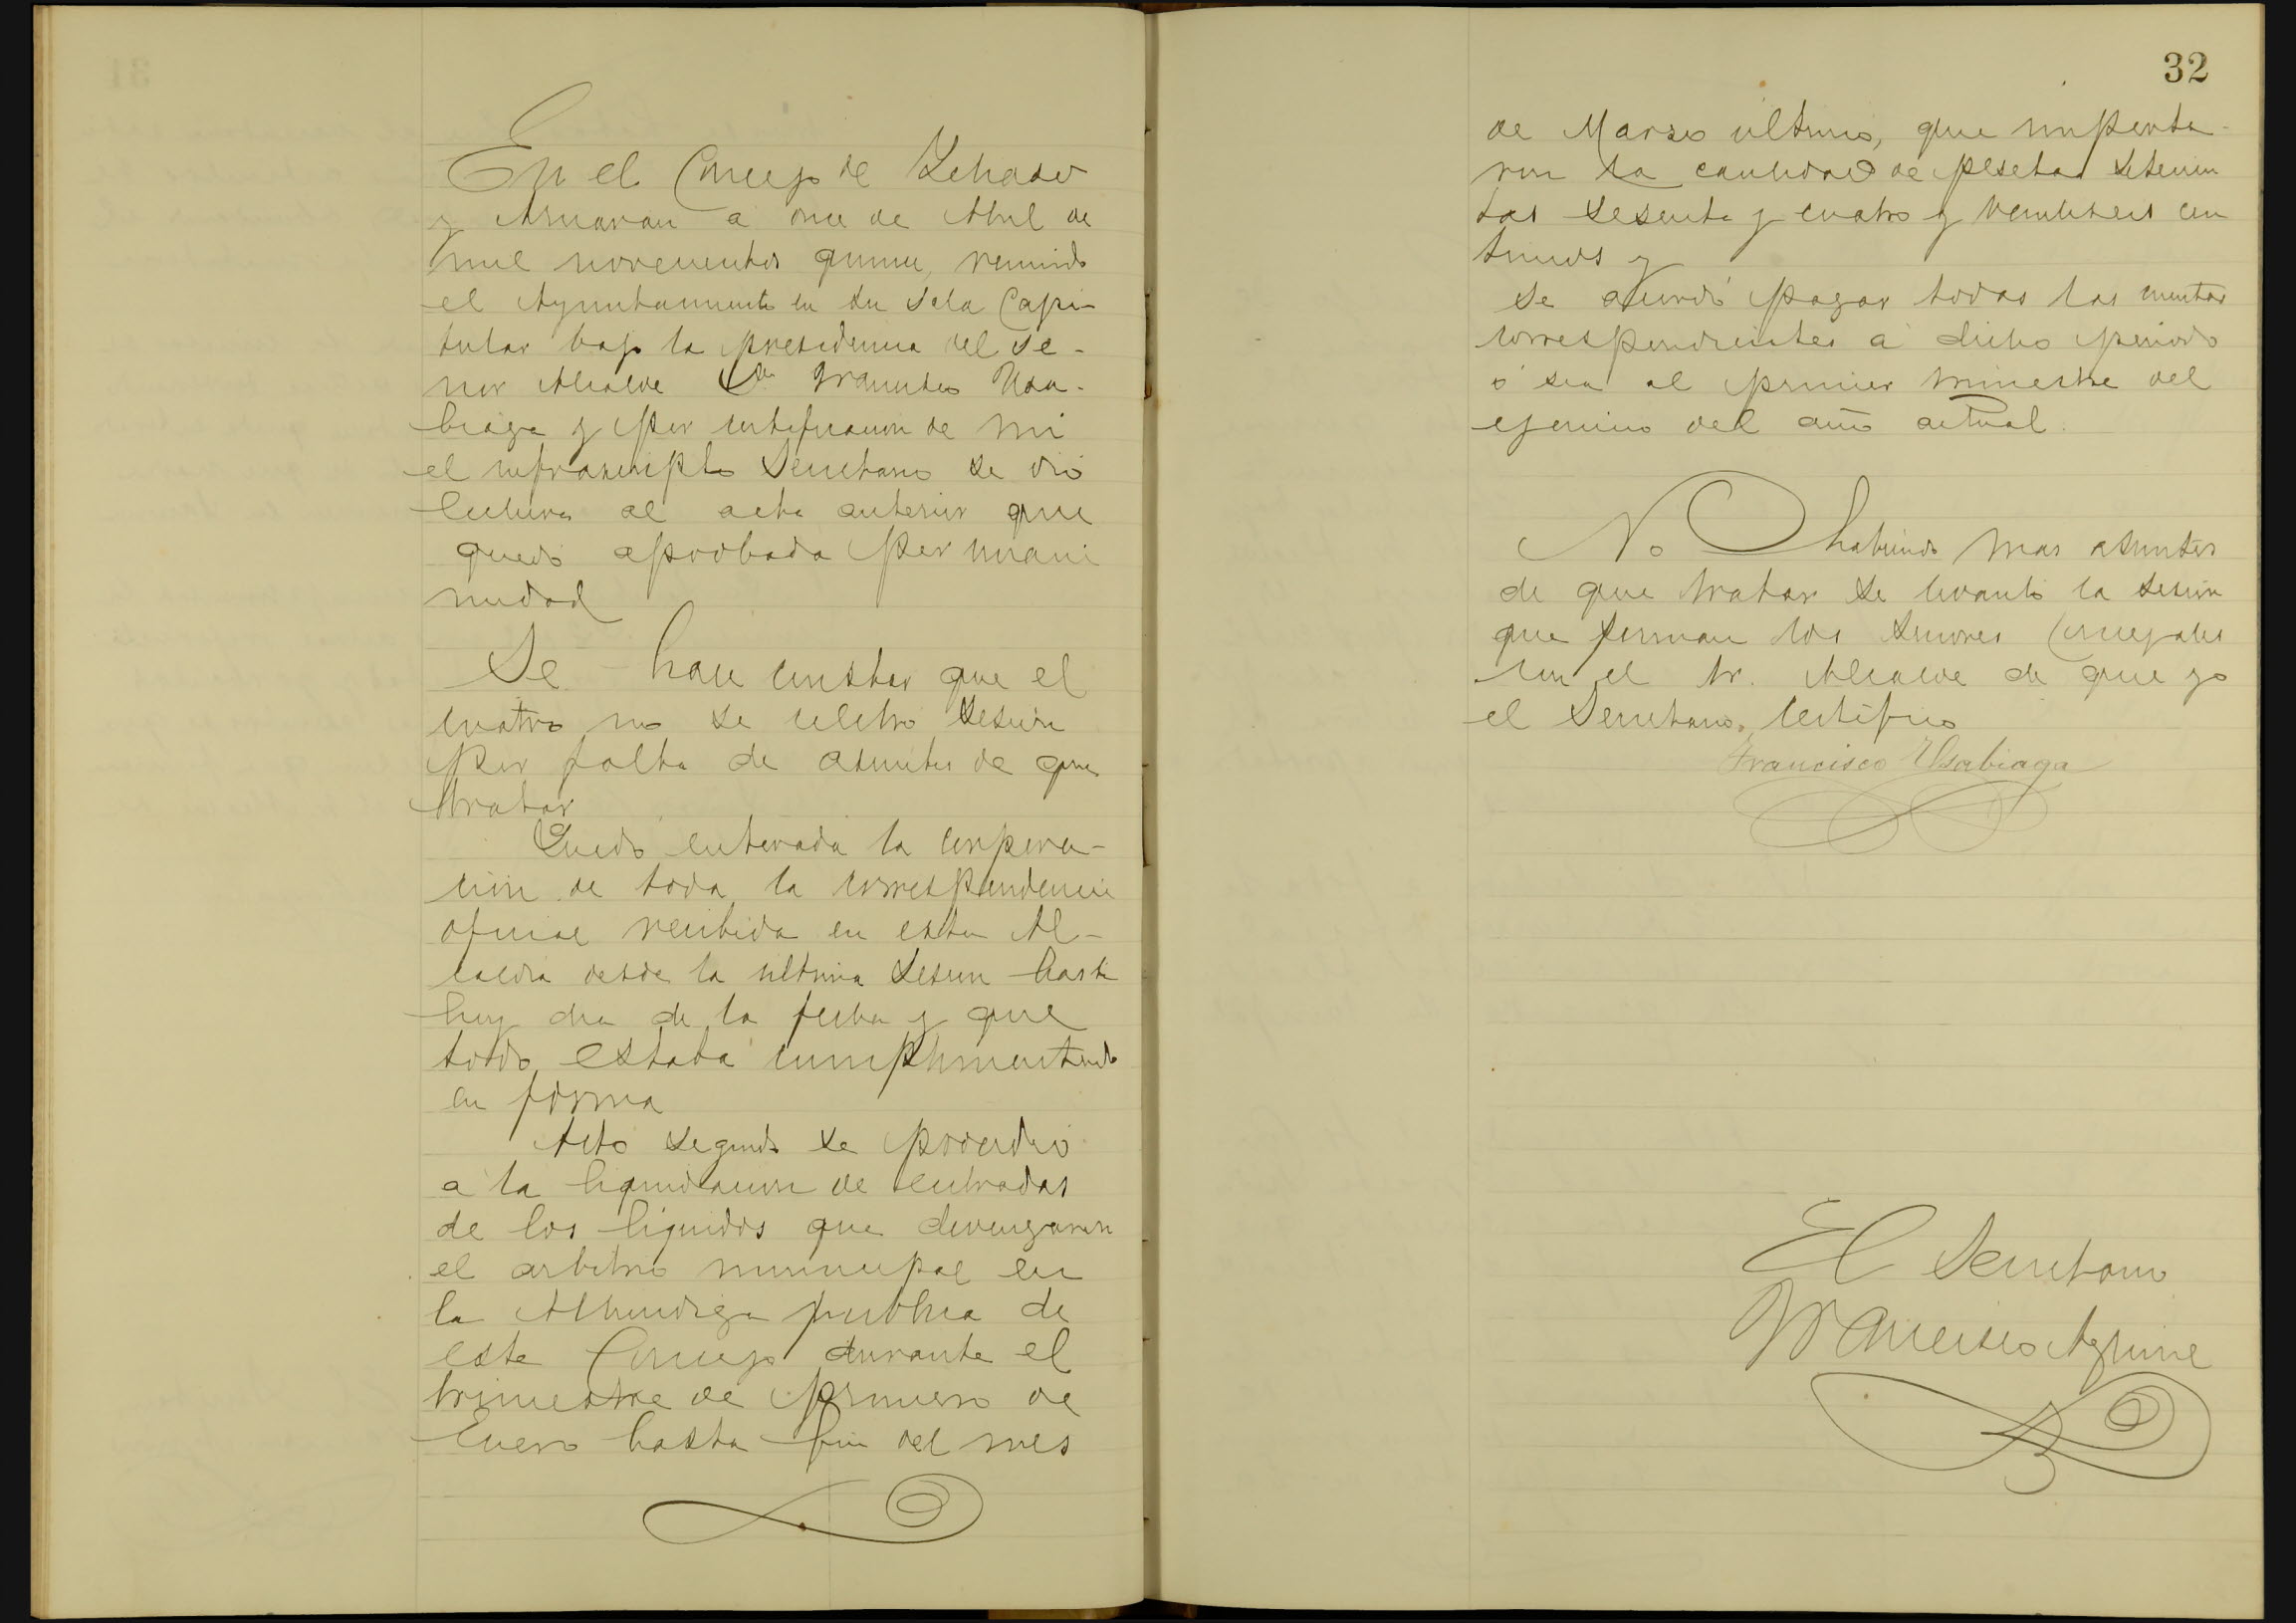 En el Concejo de Ichaso
y Arnaran a once de Abril de
mil novecientos quince, reunido
el Ayuntamiento en su Sala Capi-
tular bajo la presidencia del Se-
ñor Alcalde Dn Francisco Usa-
biaga y por certificacion de mi
el infrascripto Secretario se dió
lectura al acta anterior que
quedó aprobada por unani
midad
Se hace constar que el
cuatro no se celebró sesión
por falta de asuntos de que
tratar
Quedó enterada la corpora-
ción de toda la correspondencia
oficial recibida en esta Al-
caldia desde la ultima sesion hasta
hoy dia de la fecha y que
todo estaba cumplimentado
en forma
Acto segundo se procedió
a la liquidacion de entradas
de los liquidos que devengaron
el arbitrio municipal en
la Alhondiga publica de
este Concejo durante el
trimestre de primero de
Enero hasta fin del mes
32
de Marzo ultimo, que importa-
ron la cantidad de pesetas setecien
tas sesenta y cuatro y veintiseis cen
timos y
se acordó pagar todas las cuentas
correspondientes á dicho periodo
ó sea al primer trimestre del
ejercicio del año actual.
No habiendo mas asuntos
de que tratar se levantó la sesión
que firman los Señores Concejales
con el Sr. Alcalde de que yo
el Secretario, certifico
Francisco Usabiaga
El Secretario
Francisco Aguirre